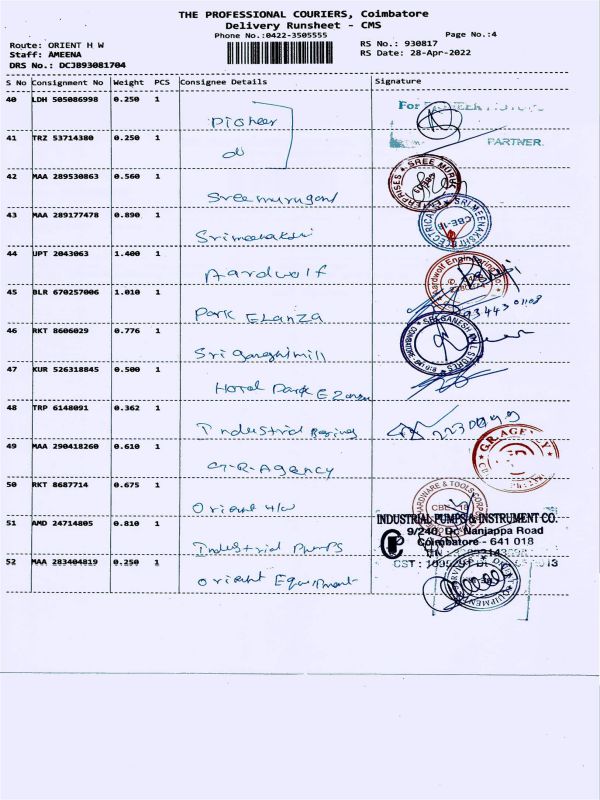 THE PROFESSIONAL COURIERS, Coimbatore
Delivery Runsheet - CMS
Phone No.:0422-3505555 Page No.:4
Route: ORIENT H W RS No.: 930817
Staff: AMEENA RS Date: 28-Apr-2022
DRS No.: DCJ893081704
S No Consignment No Weight PCS Consignee Details Signature
40 LDH 505086998 0.250 1 Pioneer For PIONEER
41 TRZ 53714380 0.250 1 PARTNER.
42 MAA 289530863 0.560 1 Sreemurugan SREE MURUGAN ENTERPRISES
43 MAA 289177478 0.890 1 Srimeenakshi SRI MEENAKSHI ELECTRICALS CBE-18
44 UPT 2043063 1.400 1 Aardwolf Aardwolf Engineering
45 BLR 670257006 1.010 1 Park Elanza
46 RKT 8606029 0.776 1 Sri Ganesh mill SRI GANESH MILL STORES
47 KUR 526318845 0.500 1 Hotel Park
48 TRP 6148091 0.362 1 Industrial
49 MAA 290418260 0.610 1 G-R-Agency G.R. AGENCY
50 RKT 8687714 0.675 1 Orient H/W HARDWARE & TOOLS CORPORATION CBE - 18
51 AMD 24714805 0.810 1 Industrial Pumps INDUSTRIAL PUMPS & INSTRUMENT CO.
9/246, Dr. Nanjappa Road
Coimbatore - 641 018
52 MAA 283404819 0.250 1 Orient Equipment CST :
ORIENT EQUIPMENT